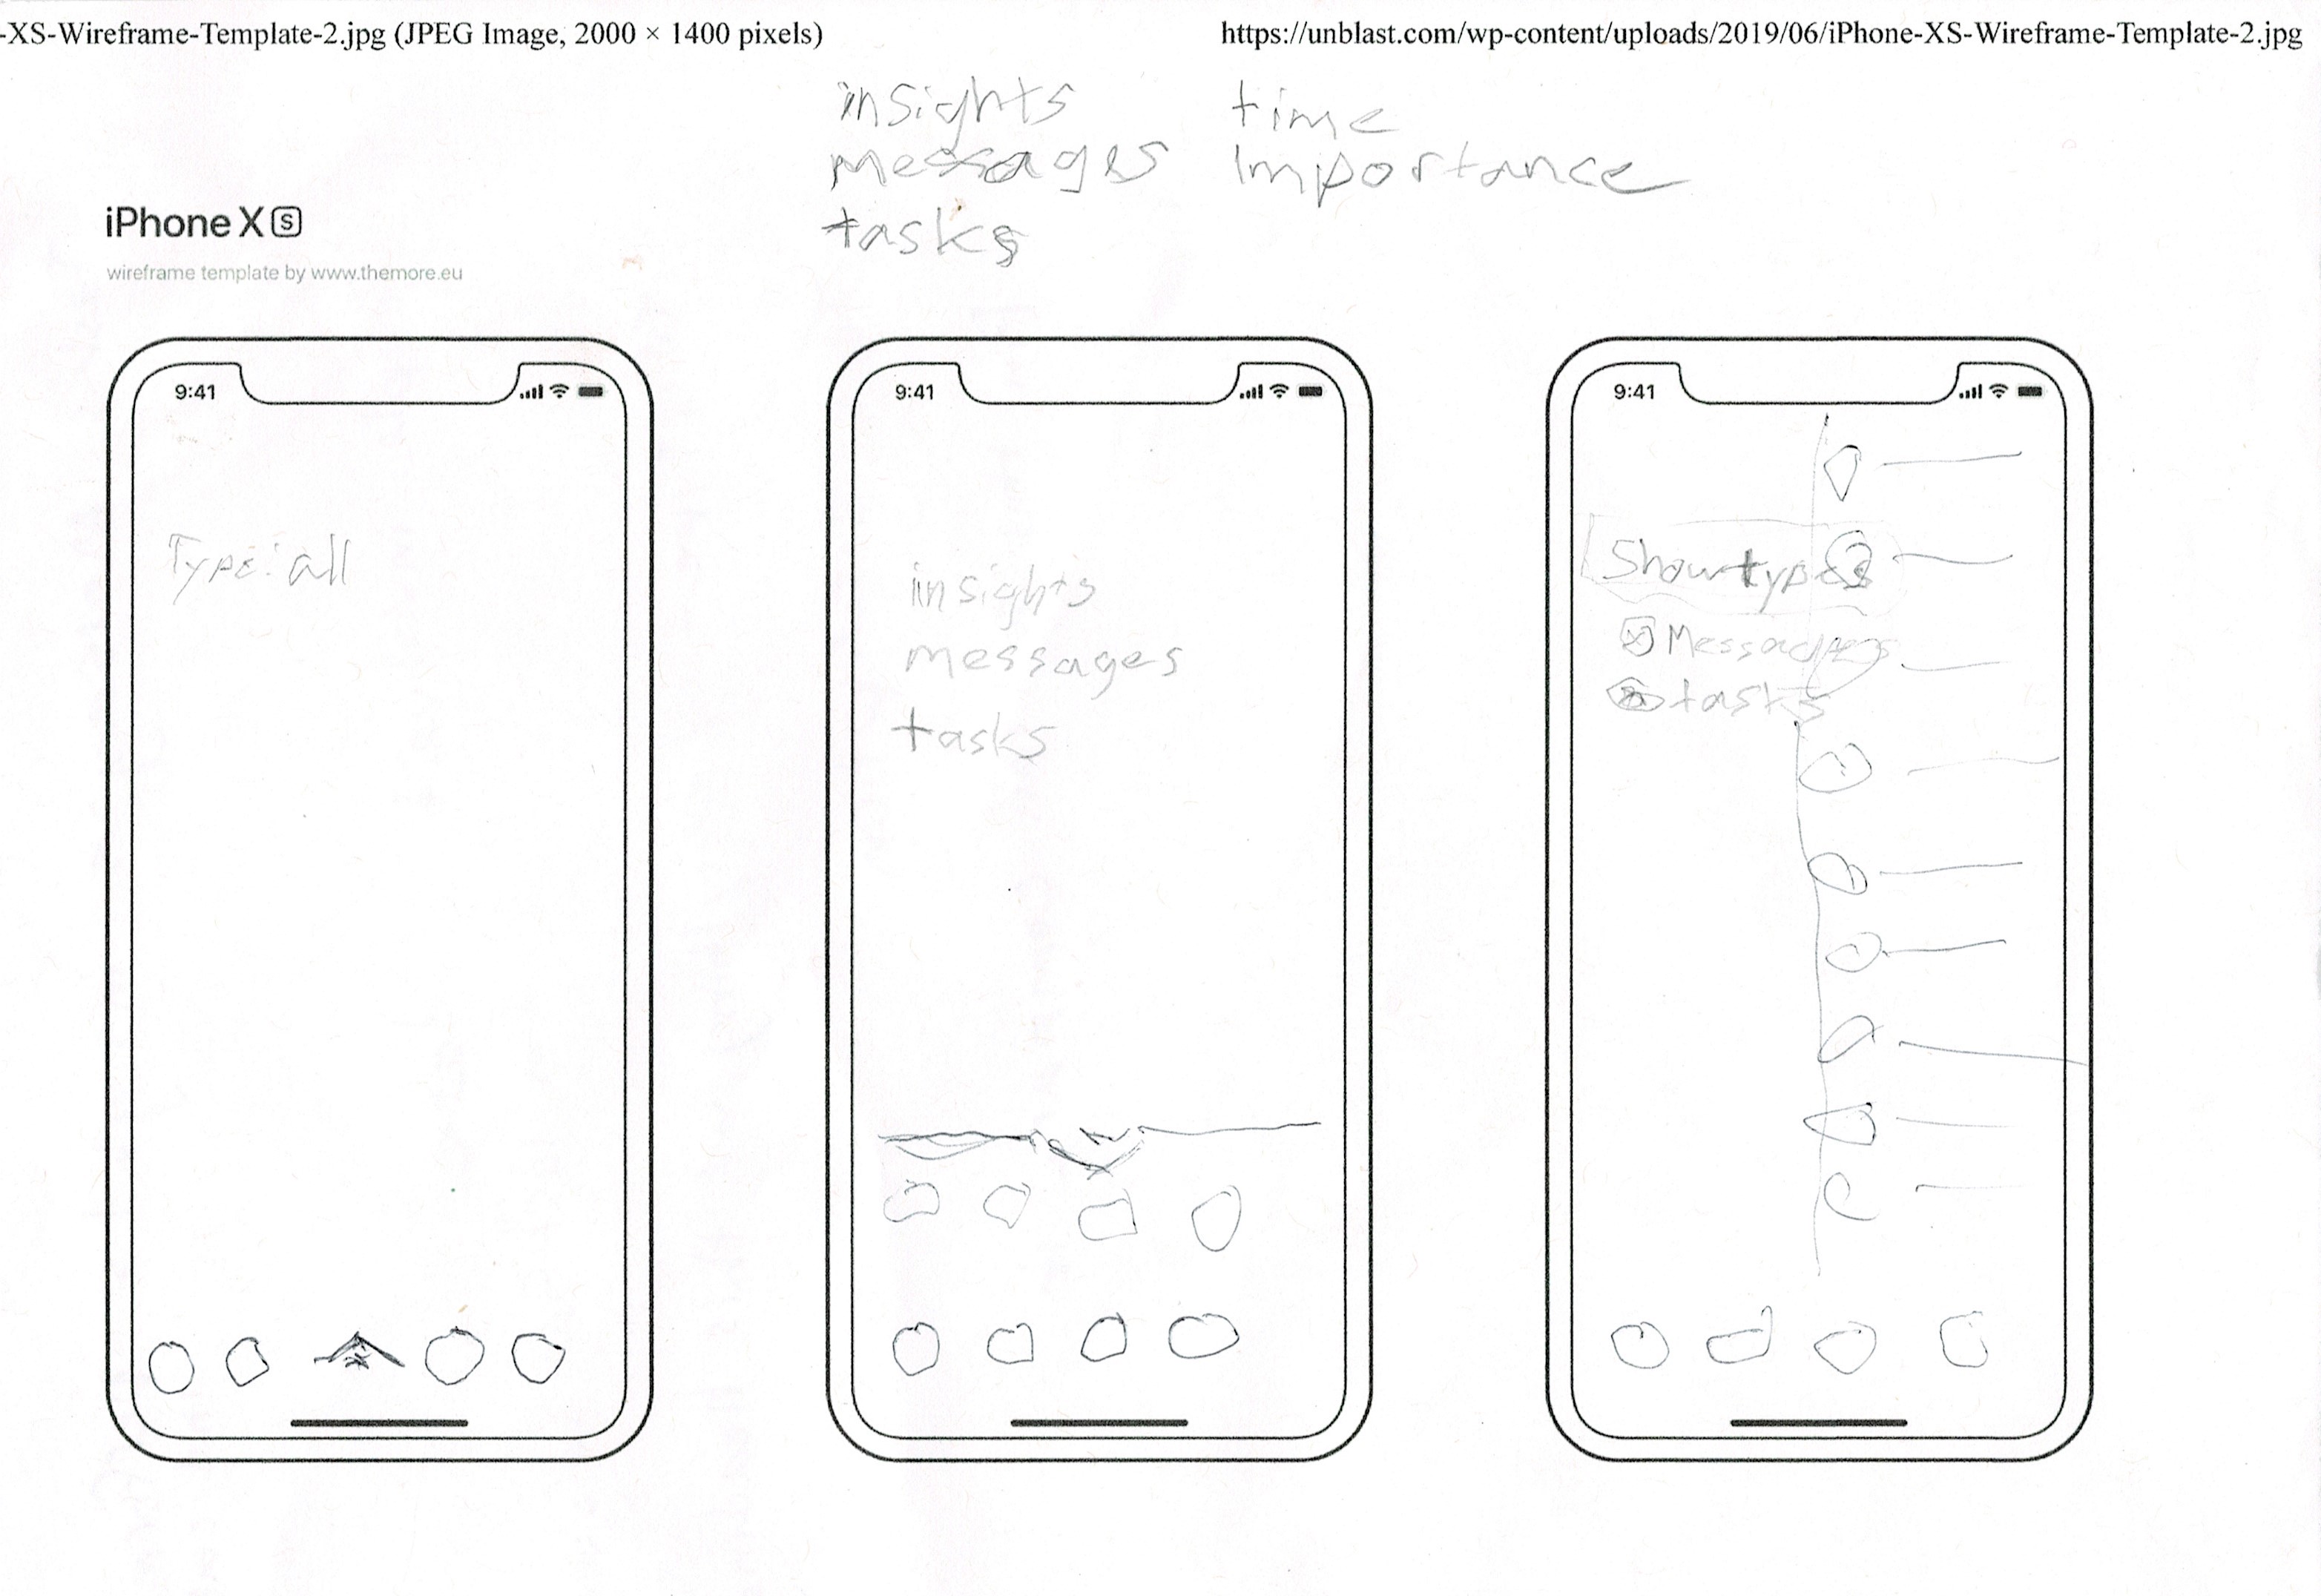 -XS-Wireframe-Template-2.jpg (JPEG Image, 2000 × 1400 pixels)
https://unblast.com/wp-content/uploads/2019/06/iPhone-XS-Wireframe-Template-2.jpg
insights
messages
tasks
time
Importance
iPhone XS
wireframe template by www.themore.eu
9:41
Type: all
9:41
insights
messages
tasks
9:41
Show types
Messages
tasks